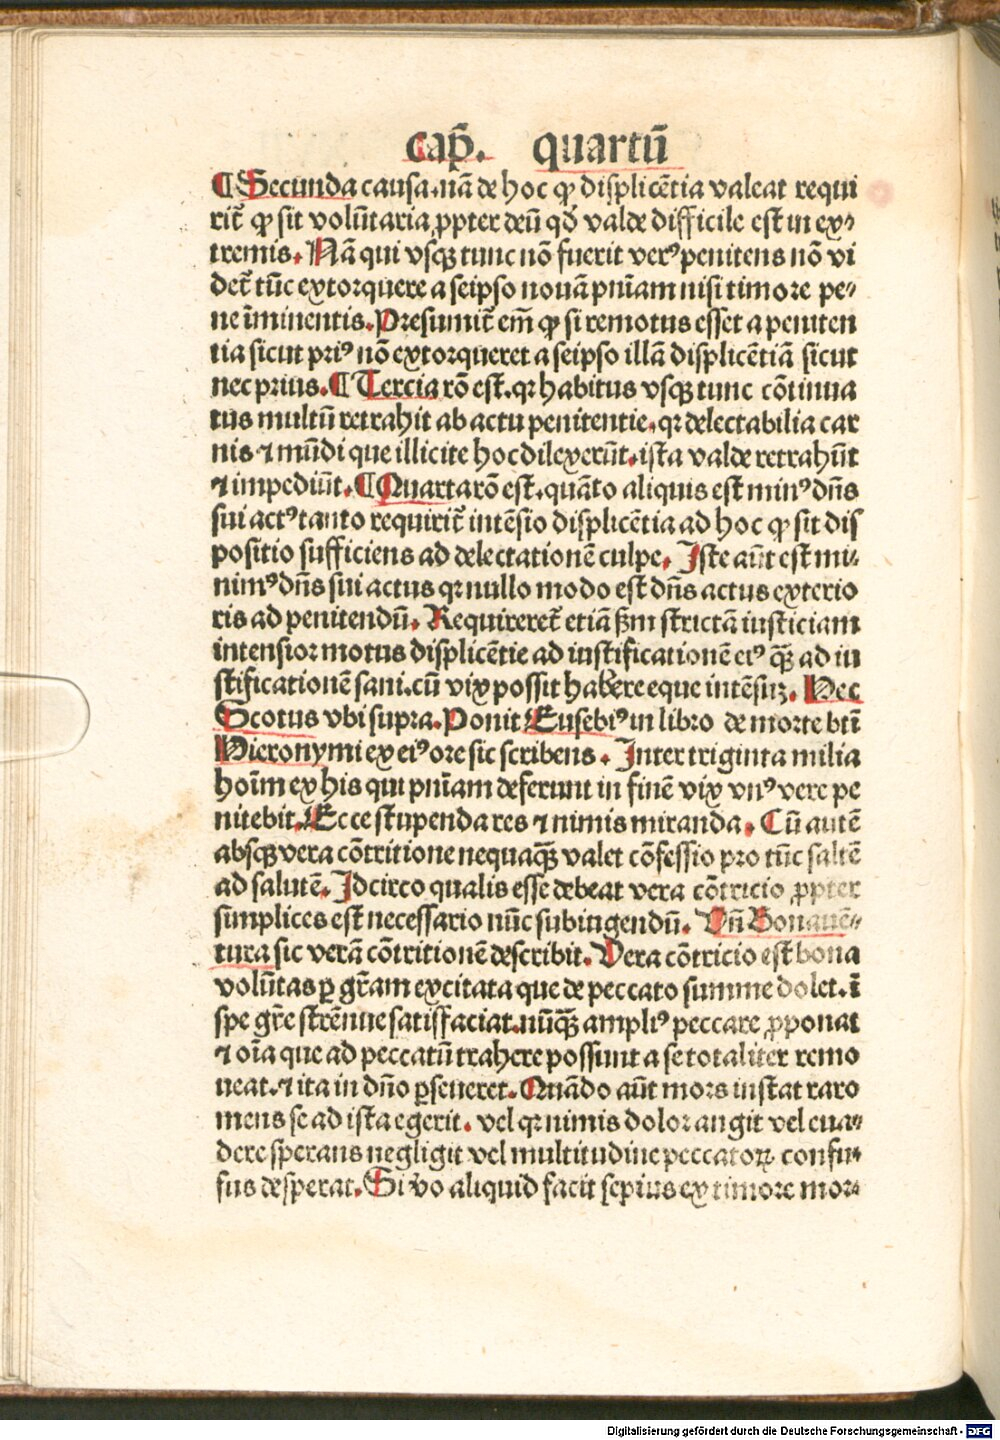 cap̃. quartū
¶ Secunda causa.nā de hoc ꝙ displicētia valeat requi
rit᷑ ꝙ sit volūtaria ꝓpter deū qđ valde difficile est in ex⸗
tremis. Nā qui vsqꝫ tunc nō fuerit verꝰ penitens nō vi
det᷑ tūc extorquere a seipso nouā pn̄iam nisi timore pe⸗
ne īminentis. Presumit᷑ em̄ ꝙ si remotus esset a peniten
tia sicut priꝰ nō extorqueret a seipso illā displicētiā sicut
nec prius. ¶ Tercia rō est.qꝛ habitus vsqꝫ tunc cōtinua
tus multū retrahit ab actu penitentie.qꝛ delectabilia car
nis ⁊ mūdi que illicite hoc dilexerūt.ista valde retrahūt
⁊ impediūt. ¶ Quarta rō est.quāto aliquis est minꝰ dn̄s
sui actꝰ tanto requirit᷑ intēsio displicētia ad hoc ꝙ sit dis
positio sufficiens ad delectationē culpe. Iste aūt est mi⸗
nimꝰ dn̄s sui actus qꝛ nullo modo est dn̄s actus exterio
ris ad penitendū. Requireret᷑ etiā ẜm strictā iusticiam
intensior motus displicētie ad iustificationē eiꝰ qꝫ̄ ad iu
stificationē sani.cū vix possit habere eque intēsuꝫ. Hec
Scotus vbi supra. Ponit Eusebiꝰ in libro de morte bti̅
Hieronymi ex eiꝰ ore sic scribens. Inter triginta milia
hoīm ex his qui pn̄iam deferunt in finē vix vnꝰ vere pe
nitebit. Ecce stupenda res ⁊ nimis miranda. Cū autē
absqꝫ vera cōtritione nequaqꝫ̄ valet cōfessio pro tūc saltē
ad salutē. Idcirco qualis esse debeat vera cōtricio ꝓpter
simplices est necessario nūc subiugendū. Vn̄ Bonauē⸗
tura sic verā cōtritionē describit. Vera cōtricio est bona
volūtas ꝑ gr̄am excitata que de peccato summe dolet.ī
spe gr̄e strēnue satisfaciat.nūqꝫ̄ ampliꝰ peccare ꝓponat
⁊ oīa que ad peccatū trahere possunt a se totaliter remo
ueat.⁊ ita in dn̄o ꝑseueret. Quādo aūt mors instat raro
mens se ad ista egerit. vel qꝛ nimis dolor angit vel eua⸗
dere sperans negligit vel multitudine peccatoꝝ confu⸗
sus desperat. Si v̄o aliquid facit sepius ex timore mor⸗
Digitalisierung gefördert durch die Deutsche Forschungsgemeinschaft - DFG